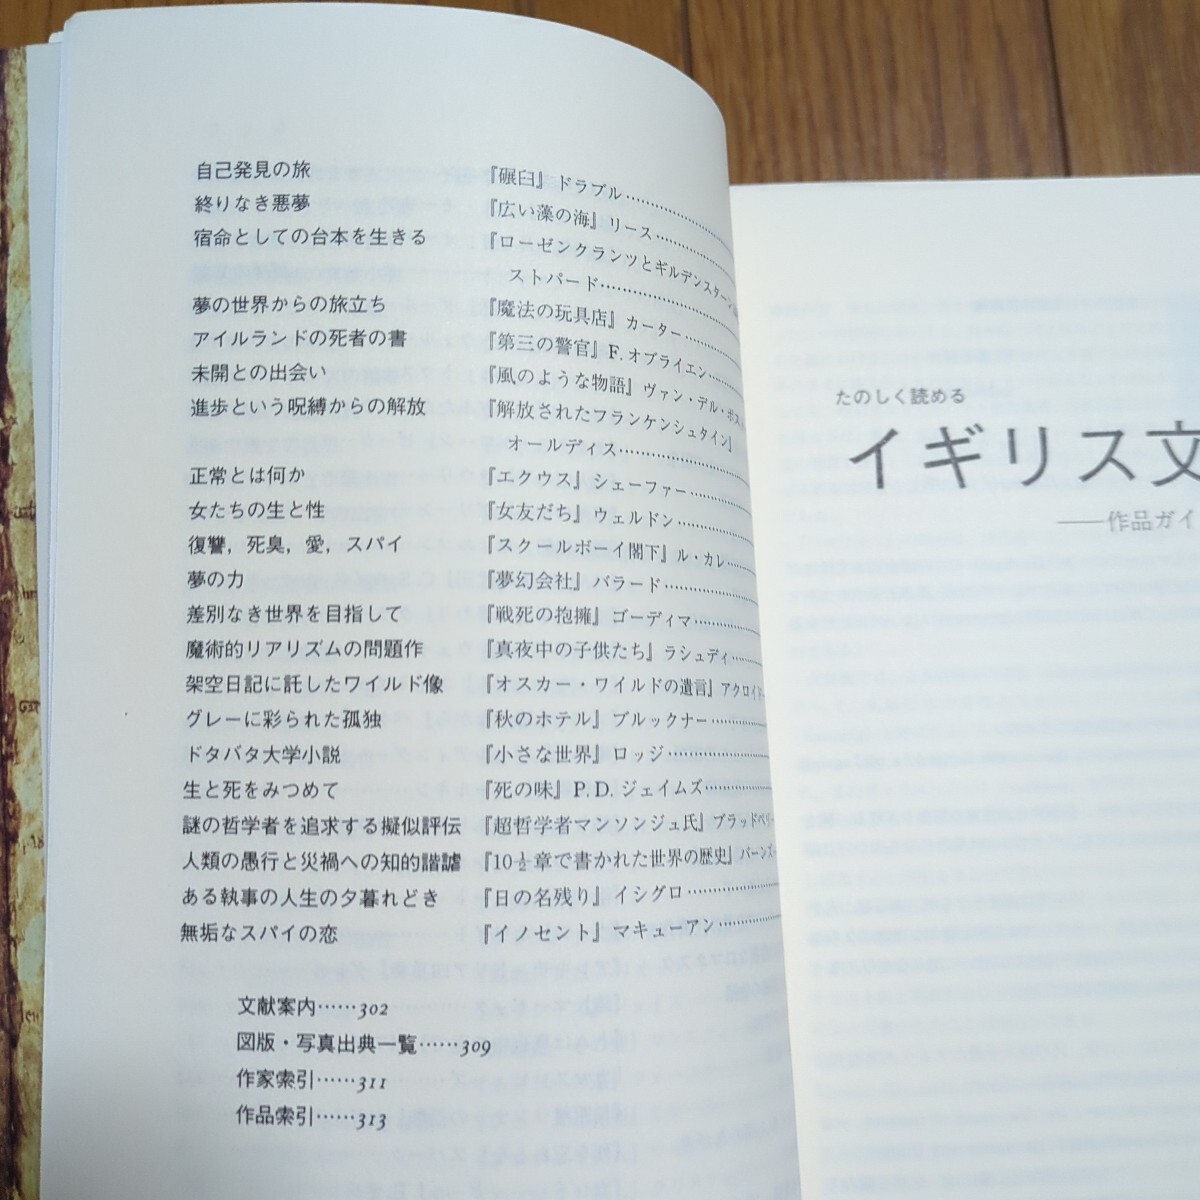 自己発見の旅 『碾臼』ドラブル
終りなき悪夢 『広い藻の海』リース
宿命としての台本を生きる 『ローゼンクランツとギルデンスターン
ストパード
夢の世界からの旅立ち 『魔法の玩具店』カーター
アイルランドの死者の書 『第三の警官』F. オブライエン
未開との出会い 『風のような物語』ヴァン・デル・ポスト
進歩という呪縛からの解放 『解放されたフランケンシュタイン』
オールディス
正常とは何か 『エクウス』シェーファー
女たちの生と性 『女友だち』ウェルドン
復讐，死臭，愛，スパイ 『スクールボーイ閣下』ル・カレ
夢の力 『夢幻会社』バラード
差別なき世界を目指して 『戦死の抱擁』ゴーディマ
魔術的リアリズムの問題作 『真夜中の子供たち』ラシュディ
架空日記に託したワイルド像 『オスカー・ワイルドの遺言』アクロイド
グレーに彩られた孤独 『秋のホテル』ブルックナー
ドタバタ大学小説 『小さな世界』ロッジ
生と死をみつめて 『死の味』P.D. ジェイムズ
謎の哲学者を追求する擬似評伝 『超哲学者マンソンジュ氏』ブラッドベリー
人類の愚行と災禍への知的諧謔 『10½章で書かれた世界の歴史』バーンズ
ある執事の人生の夕暮れどき 『日の名残り』イシグロ
無垢なスパイの恋 『イノセント』マキューアン
文献案内……302
図版・写真出典一覧……309
作家索引……311
作品索引……313
たのしく読める
イギリス文
――作品ガイ